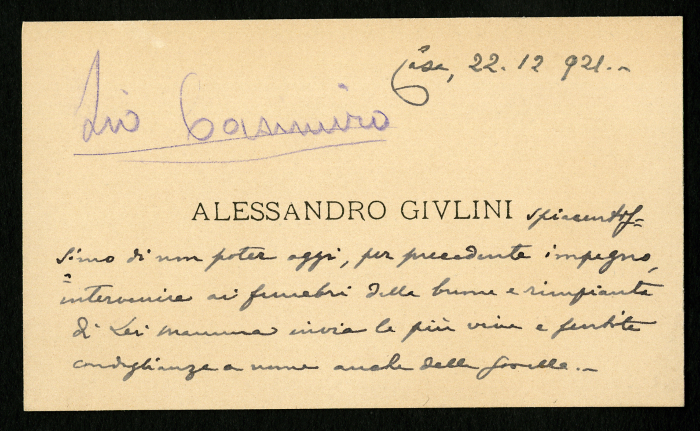 Casa, 22.12 921.-
Zio Casimiro
ALESSANDRO GIVLINI spiacentis=
simo di non poter oggi, per precedente impegno,
intervenire ai funebri della buona e rimpianta
di Lei mamma invia le più vive e sentite
condoglianze a nome anche della sorella.-